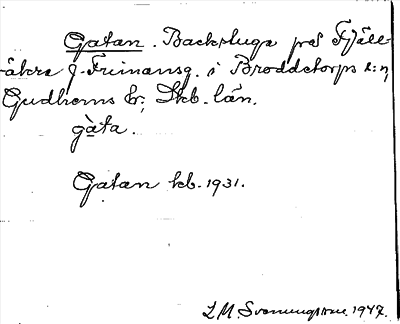 Gatan. Backstuga på Fjäll-
åkra f. Frimansg. i Broddetorps s:n,
Gudhems hr, Skb. län.
gàta.
Gatan kb. 1931.
L.M. Svenungsson 1947.